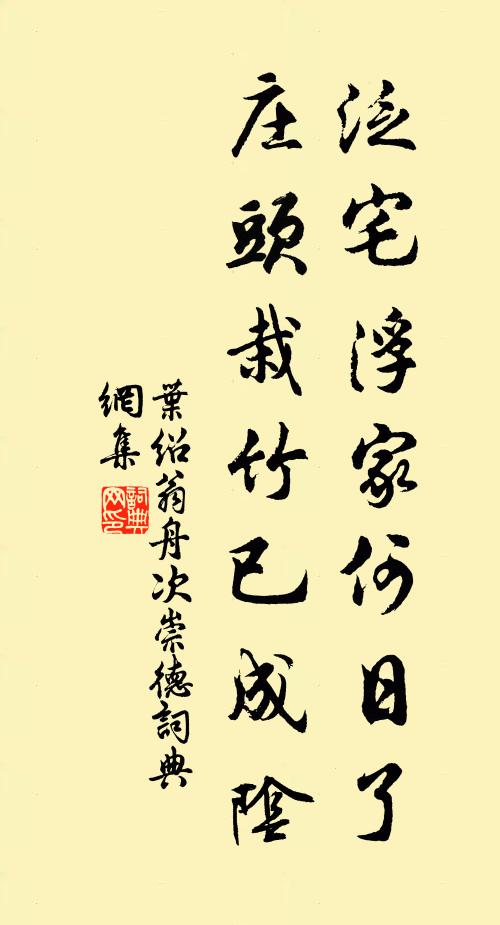 泛宅浮家何日了
庄頭栽竹已成陰
葉紹翁舟次崇德詞典
網集
詞典
网印